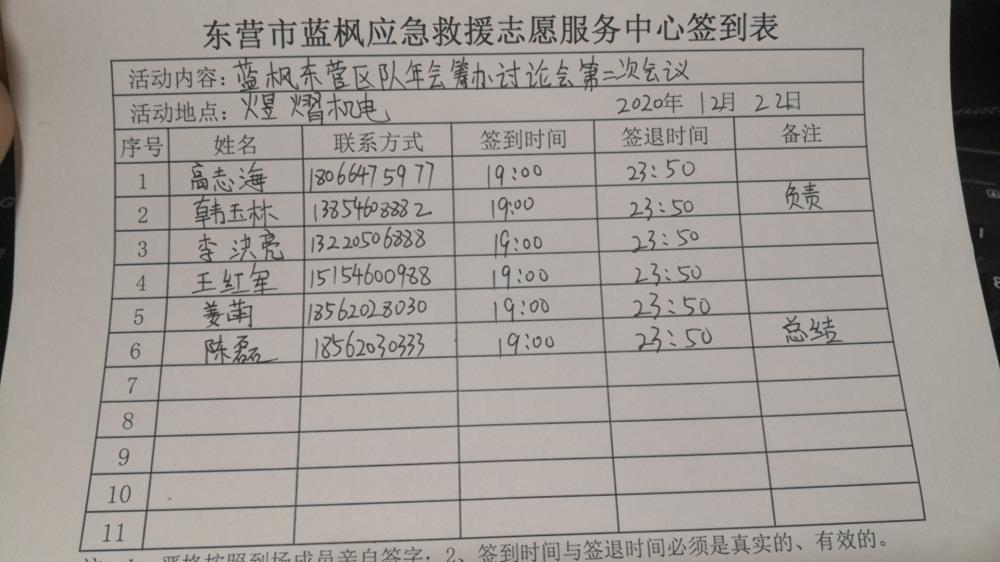 东营市蓝枫应急救援志愿服务中心签到表
活动内容：蓝枫东营区队年会筹办讨论会第二次会议
活动地点：煜熠机电 2020年 12月 22日
序号 姓名 联系方式 签到时间 签退时间 备注
1 高志海 18066475977 19:00 23:50
2 韩玉林 13854608882 19:00 23:50 负责
3 李洪亮 13220506888 19:00 23:50
4 王红军 15154600988 19:00 23:50
5 姜萌 18562028030 19:00 23:50
6 陈磊 18562030333 19:00 23:50 总结
7
8
9
10
11
严格按照到场成员亲自签字；2、签到时间与签退时间必须是真实的、有效的。